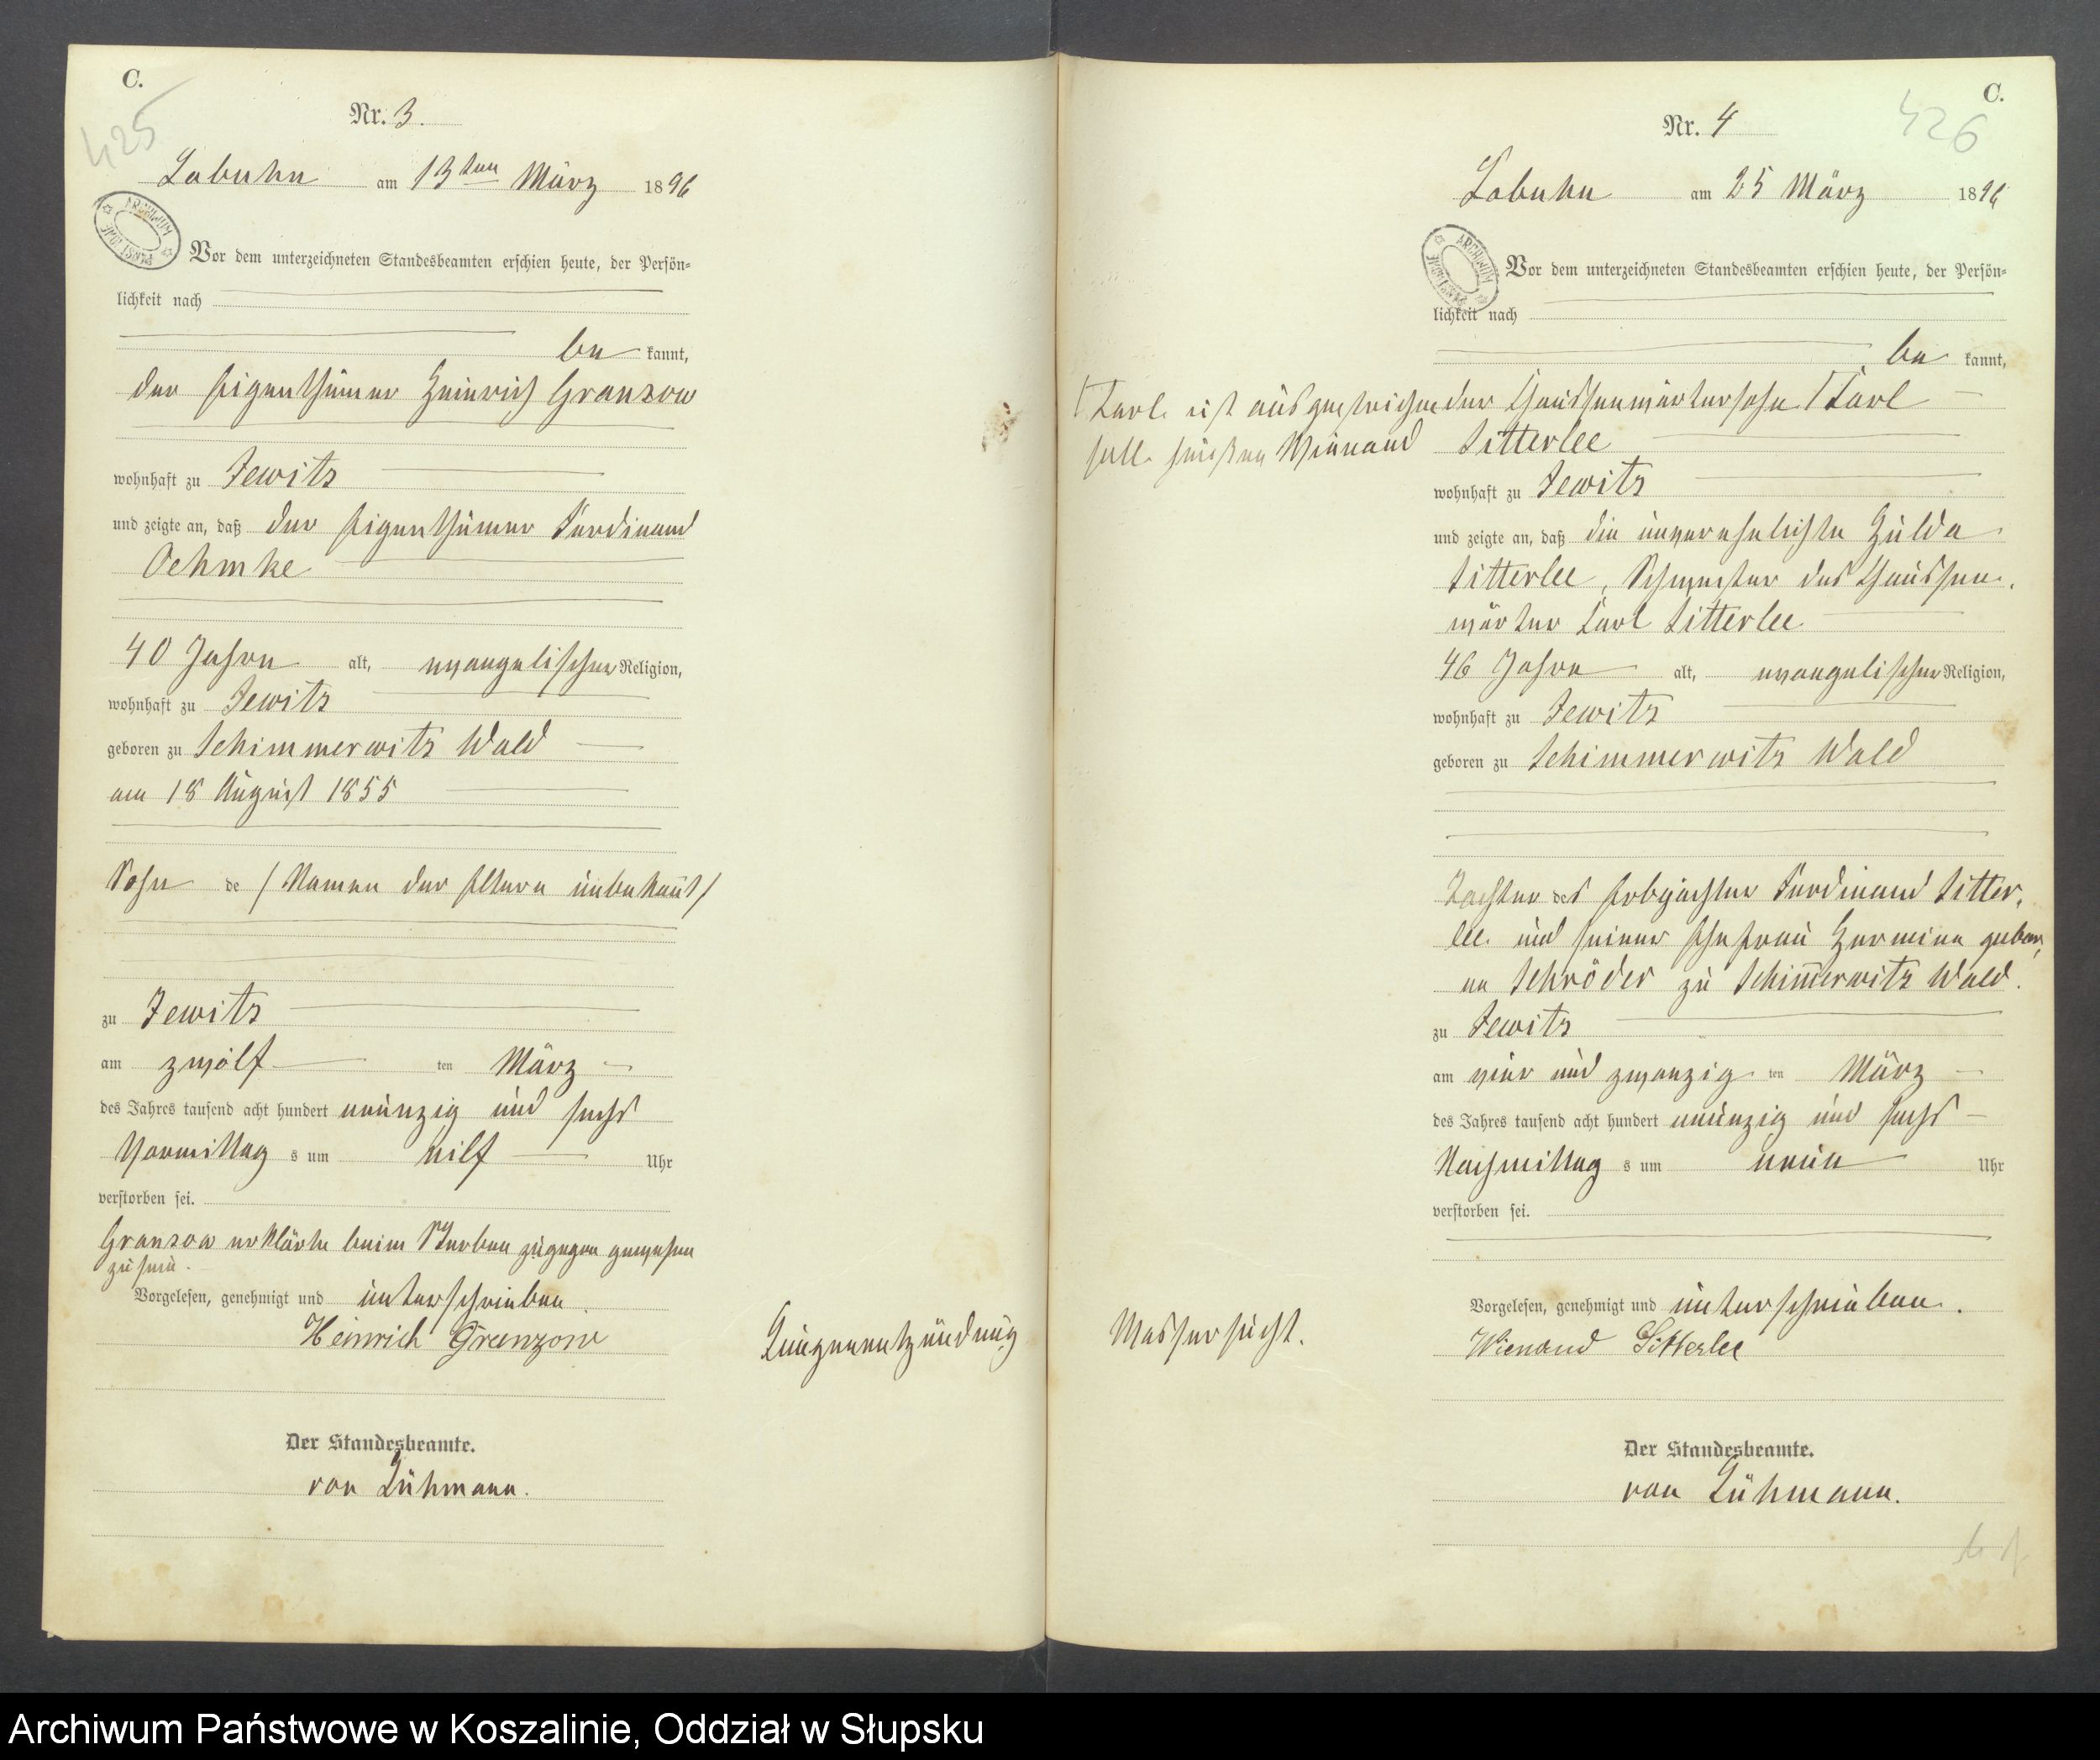 C.
425
Nr. 3.
Labuhn am 13ten März 1896
ARCHIWUM
Vor dem unterzeichneten Standesbeamten erschien heute, der Persön-
lichkeit nach
be kannt,
der Eigenthümer Heinrich Granzow
wohnhaft zu Jewitz
und zeigte an, daß der Eigenthümer Ferdinand
Oehmke
40 Jahre alt, evangelischer Religion,
wohnhaft zu Jewitz
geboren zu Schimmerwitz Wald
am 18 August 1855
Sohn de / Namen der Eltern unbekannt /
zu Jewitz
am zwölf ten März
des Jahres tausend acht hundert neunzig und sechs
Vormittag s um elf Uhr
verstorben sei.
Granzow erklärte beim Sterben zugegen gewesen
zu sein.
Vorgelesen, genehmigt und unterschrieben.
Heinrich Granzow
Lungenentzündung
Der Standesbeamte.
von Lühmann.
C.
426
Nr. 4
Labuhn am 25 März 1896
ARCHIWUM
Vor dem unterzeichneten Standesbeamten erschien heute, der Persön-
lichkeit nach
be kannt,
der Chausseewärtersohn Karl
Sitterlee
Karl ist ausgestrichen
soll heißen Wienand
wohnhaft zu Jewitz
und zeigte an, daß die unverehelichte Hulda
Sitterlee, Schwester des Chaussee-
wärter Karl Sitterlee
46 Jahre alt, evangelischer Religion,
wohnhaft zu Jewitz
geboren zu Schimmerwitz Wald
Tochter des Erbpächter Ferdinand Sitter-
lee und seiner Ehefrau Hermine gebor-
ne Schröder zu Schimmerwitz Wald.
zu Jewitz
am vier und zwanzig ten März
des Jahres tausend acht hundert neunzig und sechs
Nachmittag s um neun Uhr
verstorben sei.
Vorgelesen, genehmigt und unterschrieben.
Wienand Sitterlee
Wassersucht.
Der Standesbeamte.
von Lühmann.
Archiwum Państwowe w Koszalinie, Oddział w Słupsku